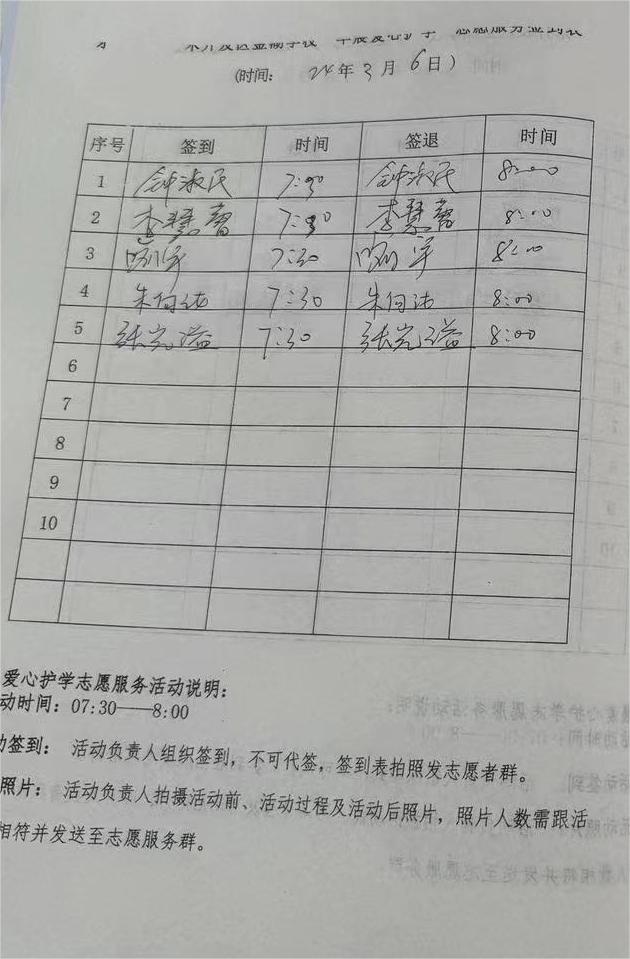 志愿服务签到表
(时间: 24年3月6日)
序号 签到 时间 签退 时间
1 钟淑民 7:30 钟淑民 8:00
2 李慧馨 7:30 李慧馨 8:00
3 7:30 8:00
4 朱向洁 7:30 朱向洁 8:00
5 张光溢 7:30 张光溢 8:00
6
7
8
9
10
爱心护学志愿服务活动说明:
动时间: 07:30——8:00
签到: 活动负责人组织签到, 不可代签, 签到表拍照发志愿者群。
照片: 活动负责人拍摄活动前、活动过程及活动后照片, 照片人数需跟活
相符并发送至志愿服务群。